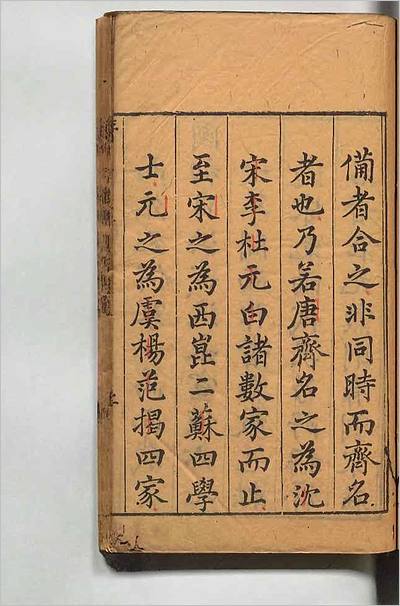 備者合之非同時而齊名
者也乃若唐齊名之為沈
宋李杜元白諸數家而止
至宋之為西崑二蘇四學
士元之為虞楊范揭四家